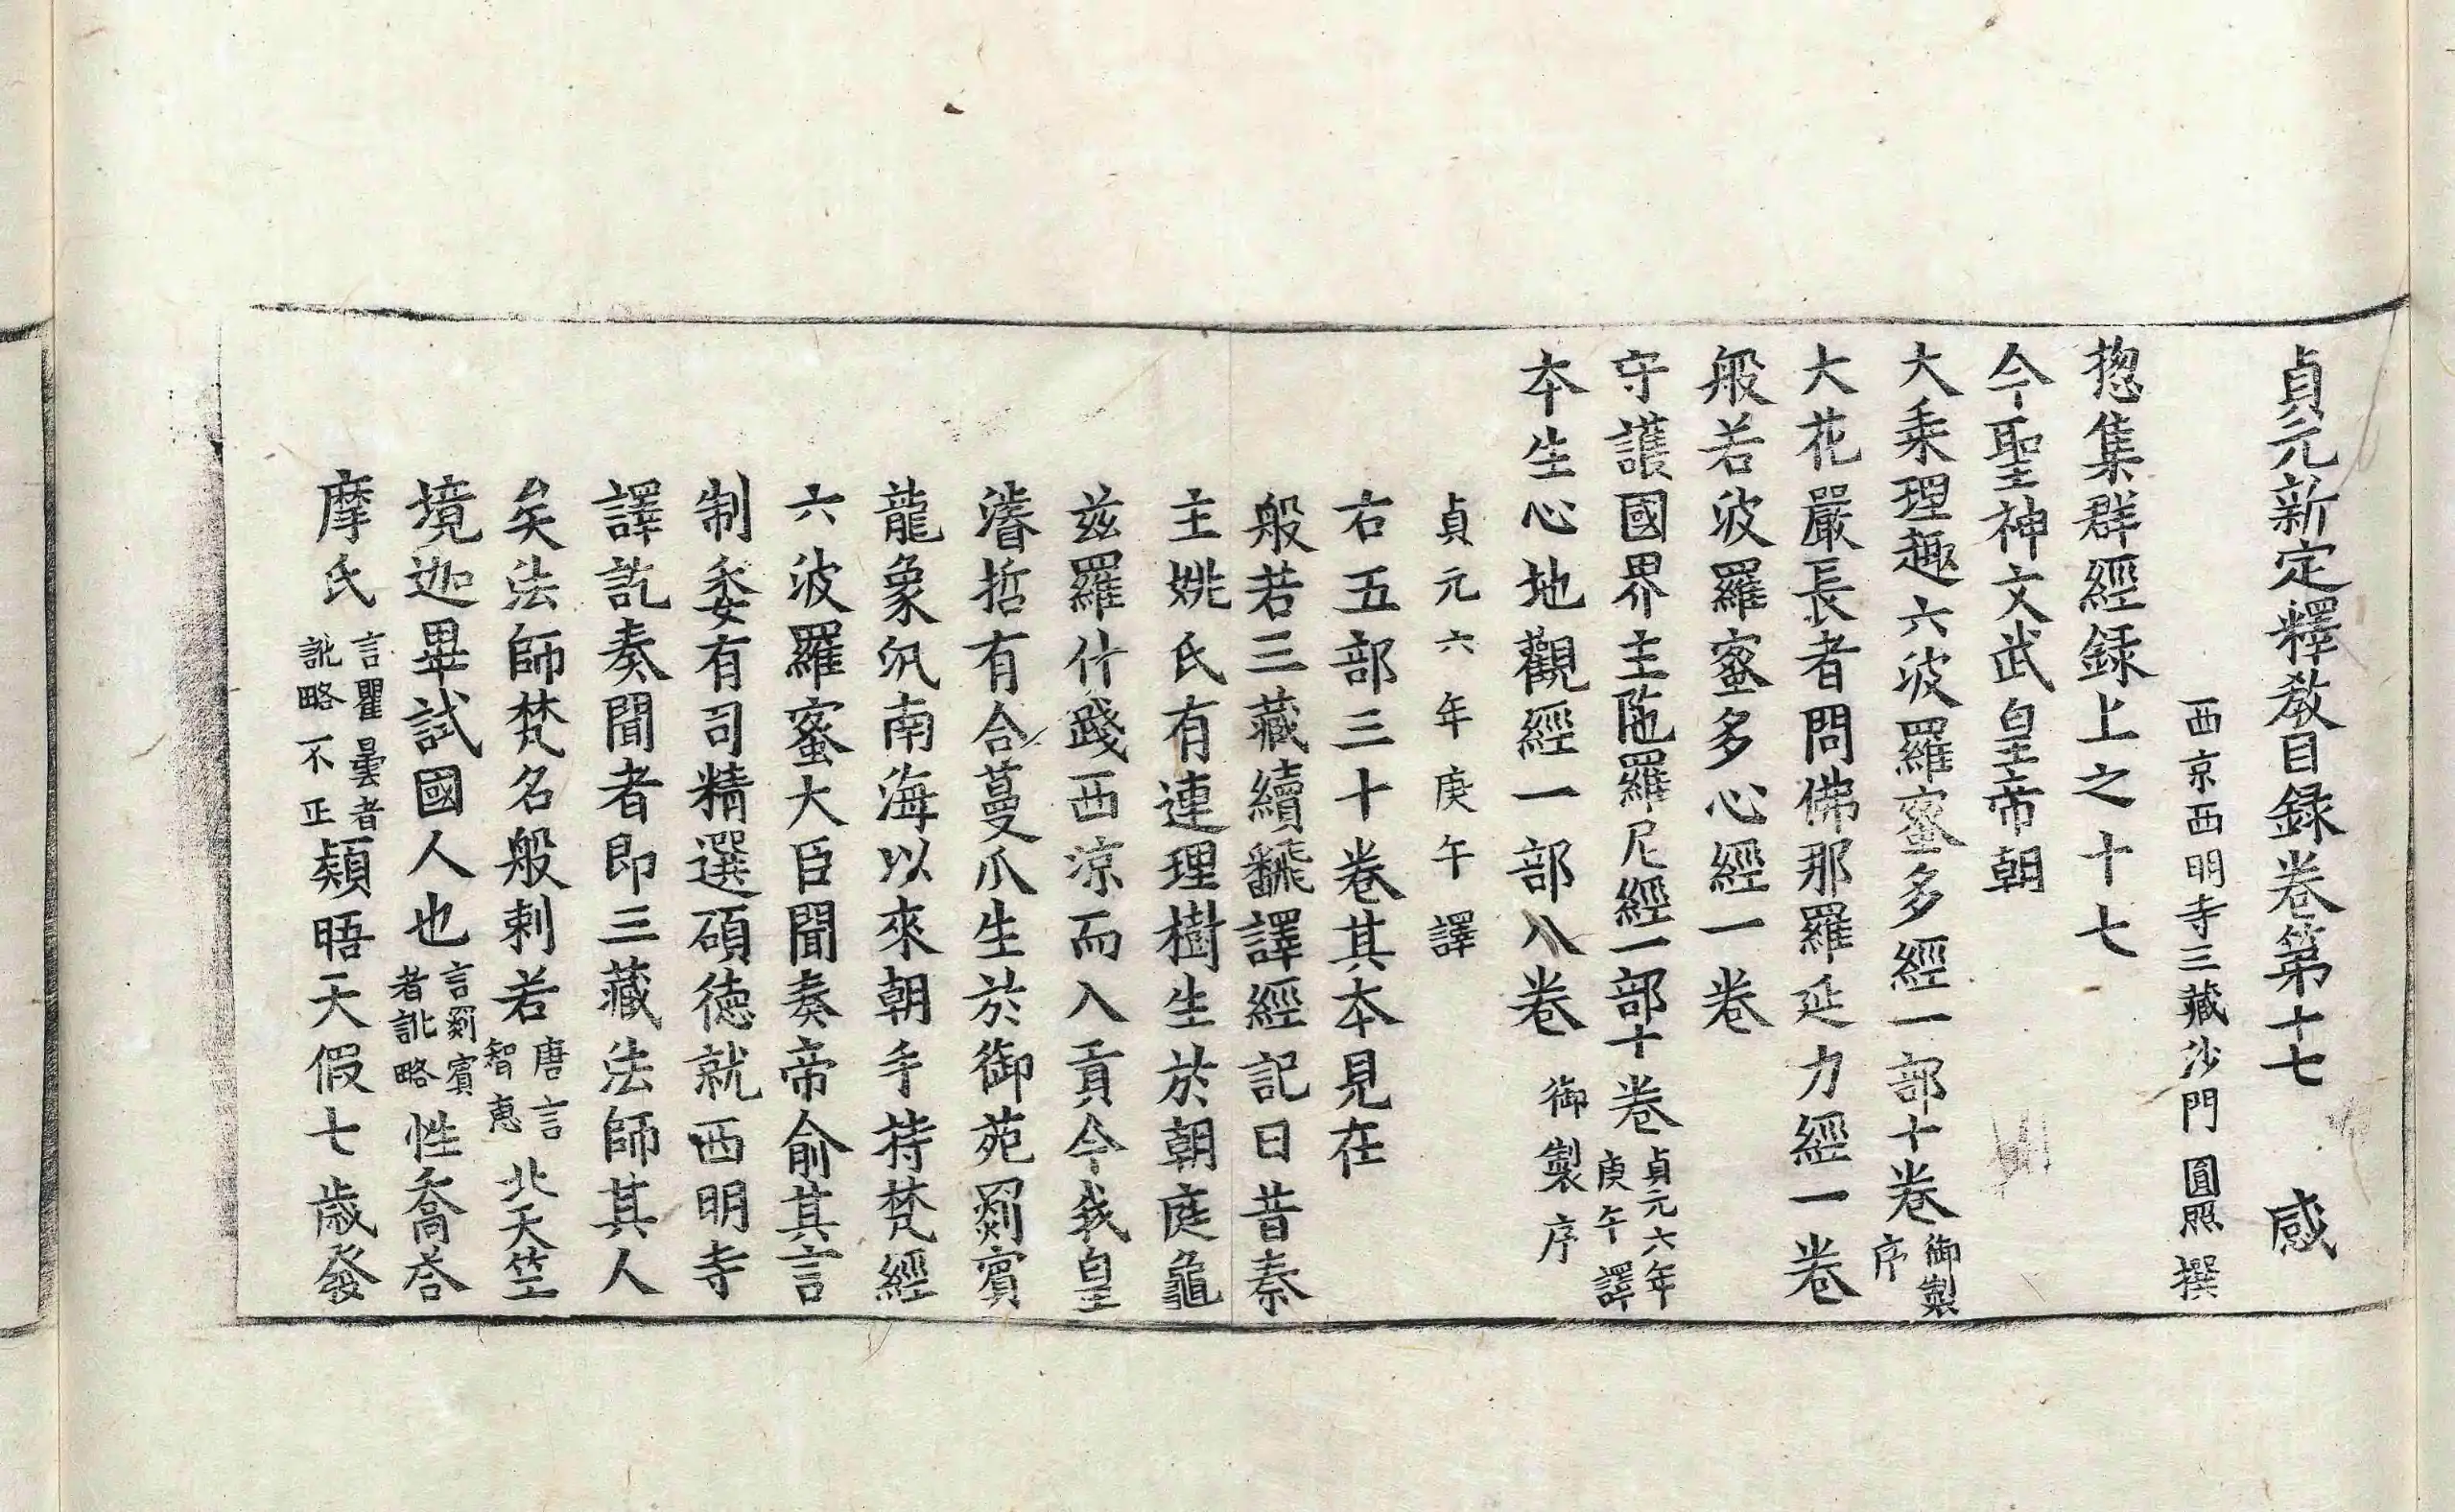 貞元新定釋教目録卷第十七 感
西京西明寺三藏沙門 圓照 撰
揔集群經録上之十七
今聖神文武皇帝朝
大乘理趣六波羅蜜多經一部十卷御製序
大花嚴長者問佛那羅延力經一卷
般若波羅蜜多心經一卷
守護國界主陁羅尼經一部十卷貞元六年庚午譯
本生心地觀經一部八卷 御製序
貞元六年庚午譯
右五部三十卷其本見在
般若三藏續飜譯經記曰昔秦
主姚氏有連理樹生於朝庭龜
兹羅什踐西涼而入貢今我皇
濬哲有合蔓爪生於御苑罽賓
龍象汎南海以來朝手持梵經
六波羅蜜大臣聞奏帝俞其言
制委有司精選碩德就西明寺
譯訖奏聞者即三藏法師其人
矣法師梵名般剌若唐言智惠北天竺
境迦畢試國人也言罽賓者訛略性喬荅
摩氏言瞿曇者訛略不正頴晤天假七歳發